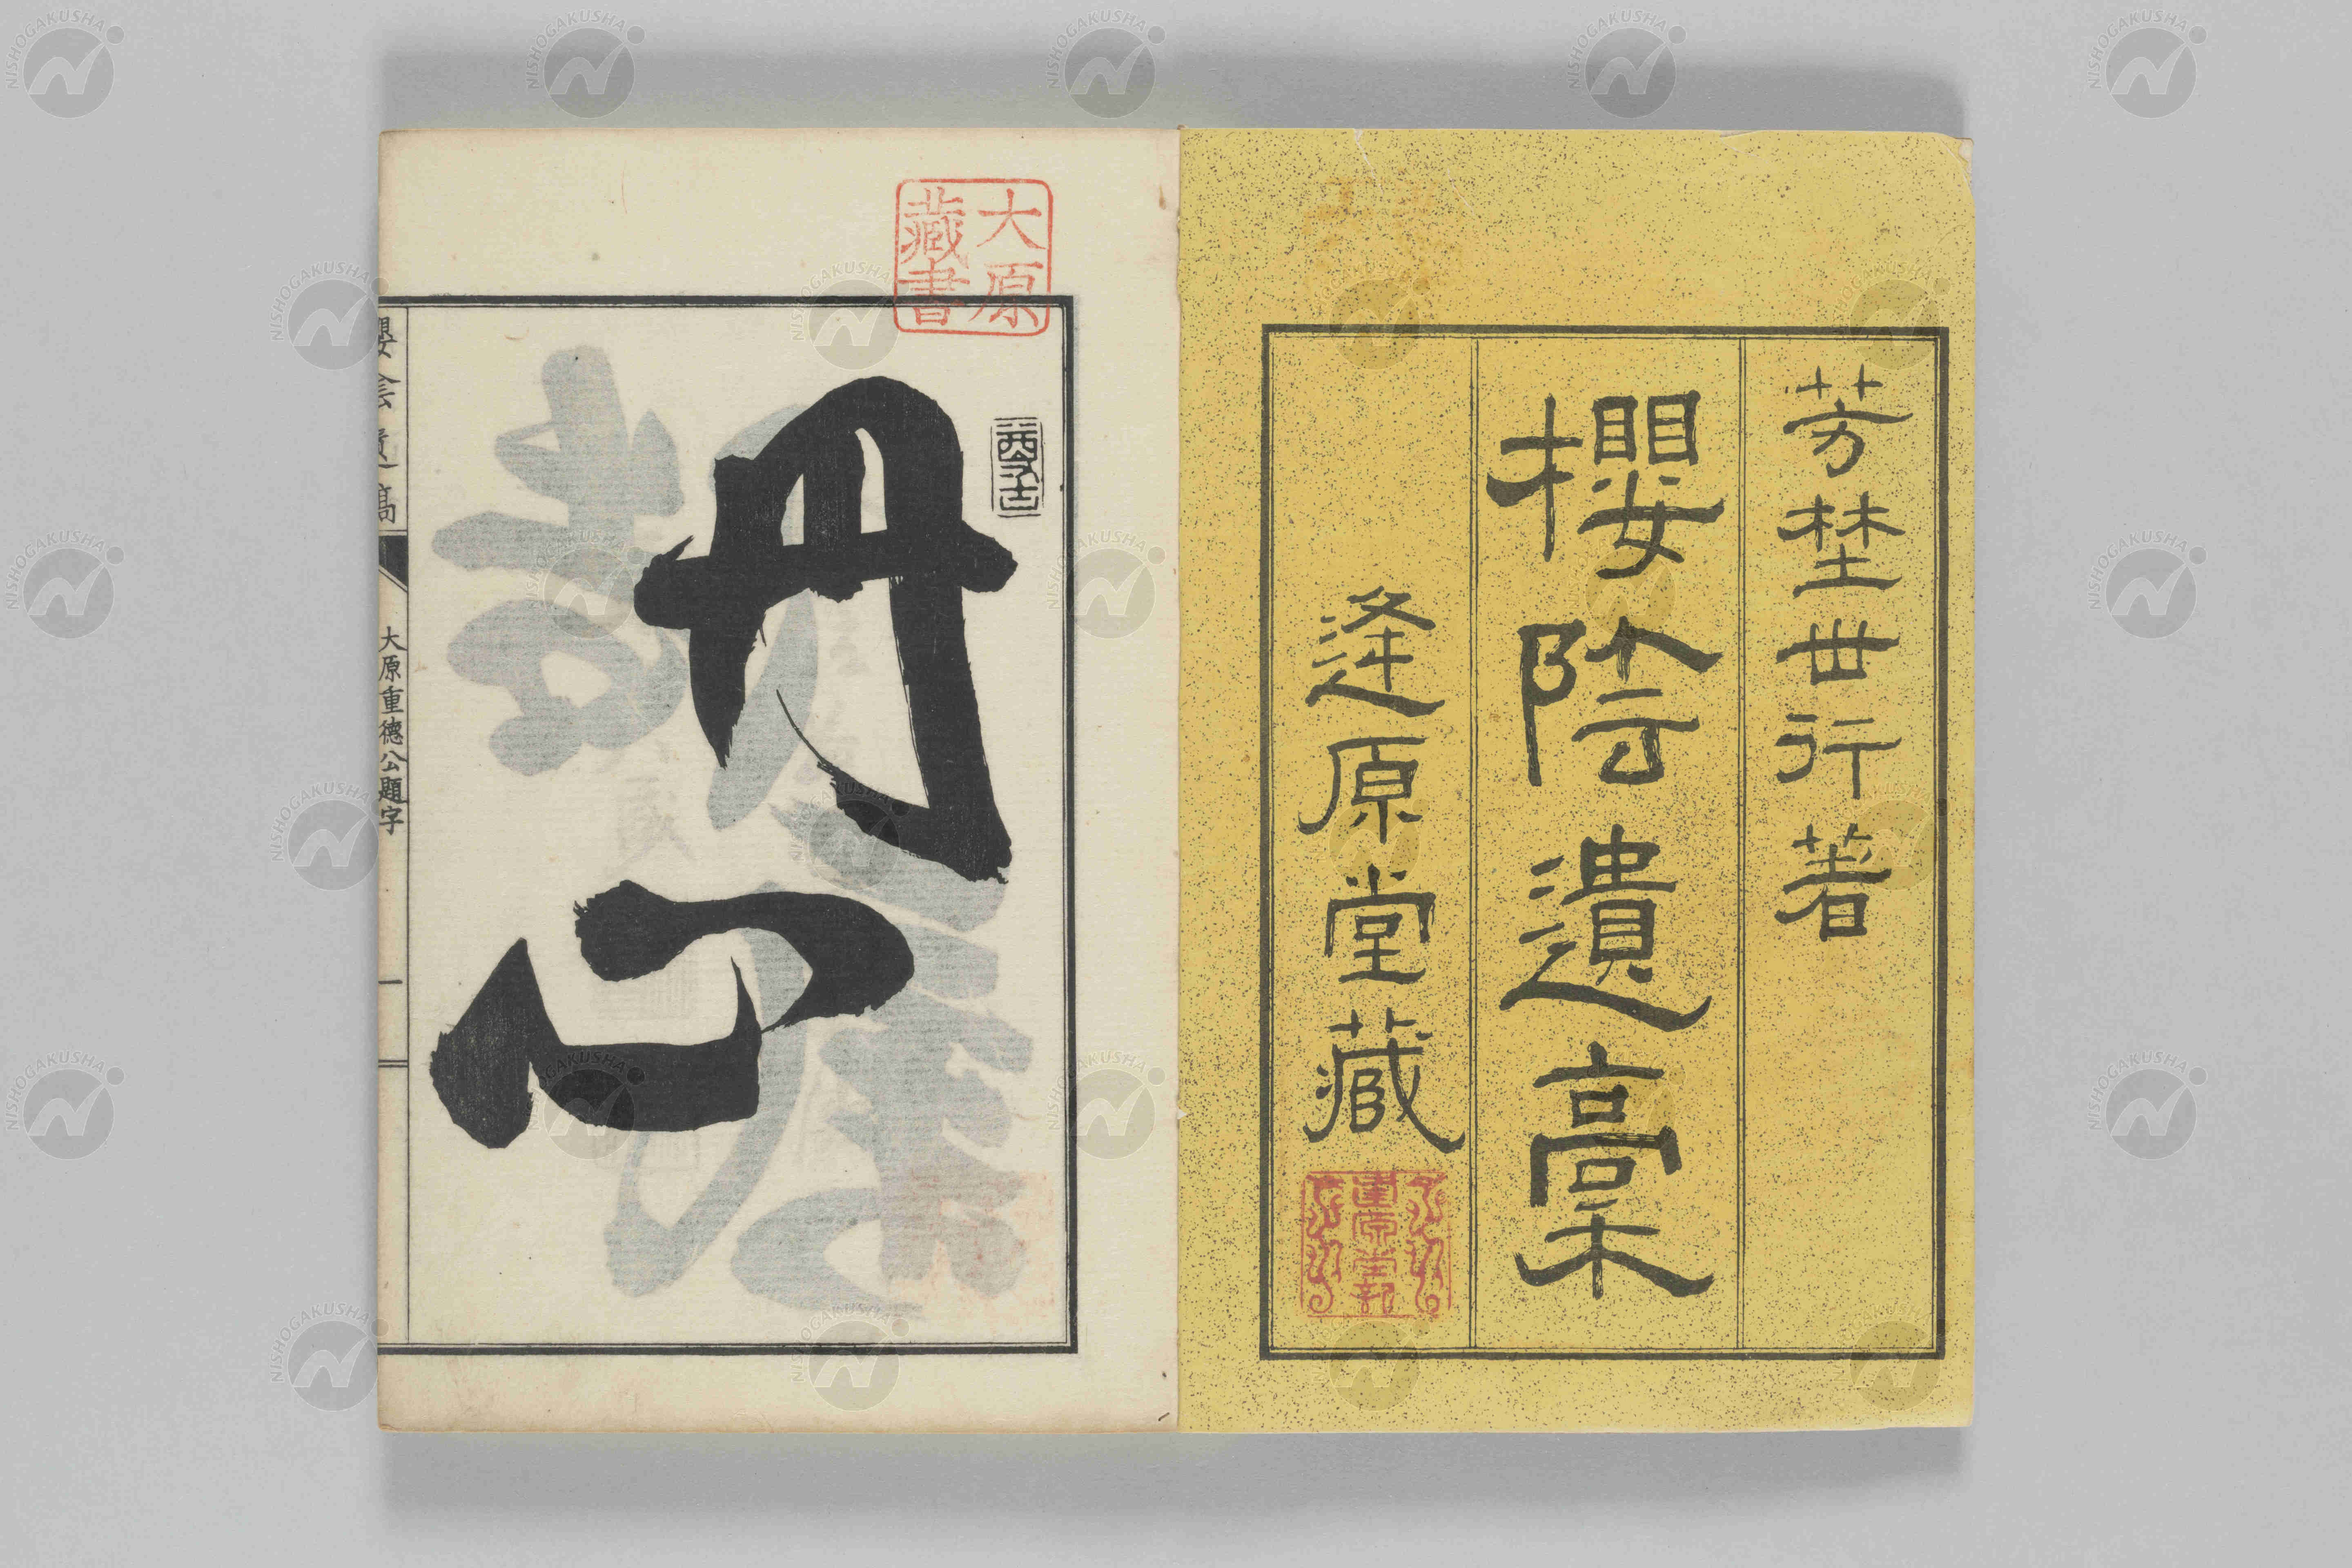 芳埜世行著
櫻陰遺稾
逢原堂藏
大原
藏書
丹心
櫻陰遺稿
大原重德公題字
一
NISHOGAKUSHA